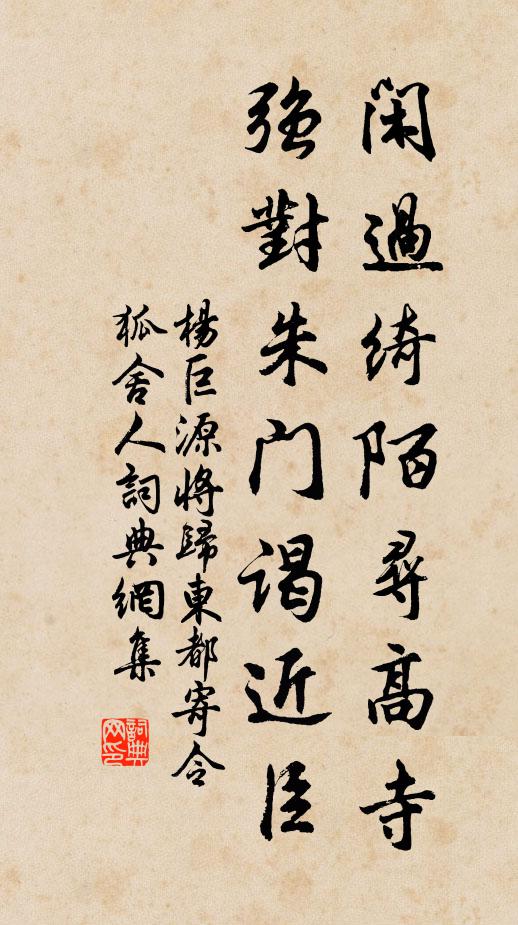 閑過綺陌尋高寺
強對朱門謁近臣
楊巨源將歸東都寄令
狐舍人詞典網集
詞典
网印